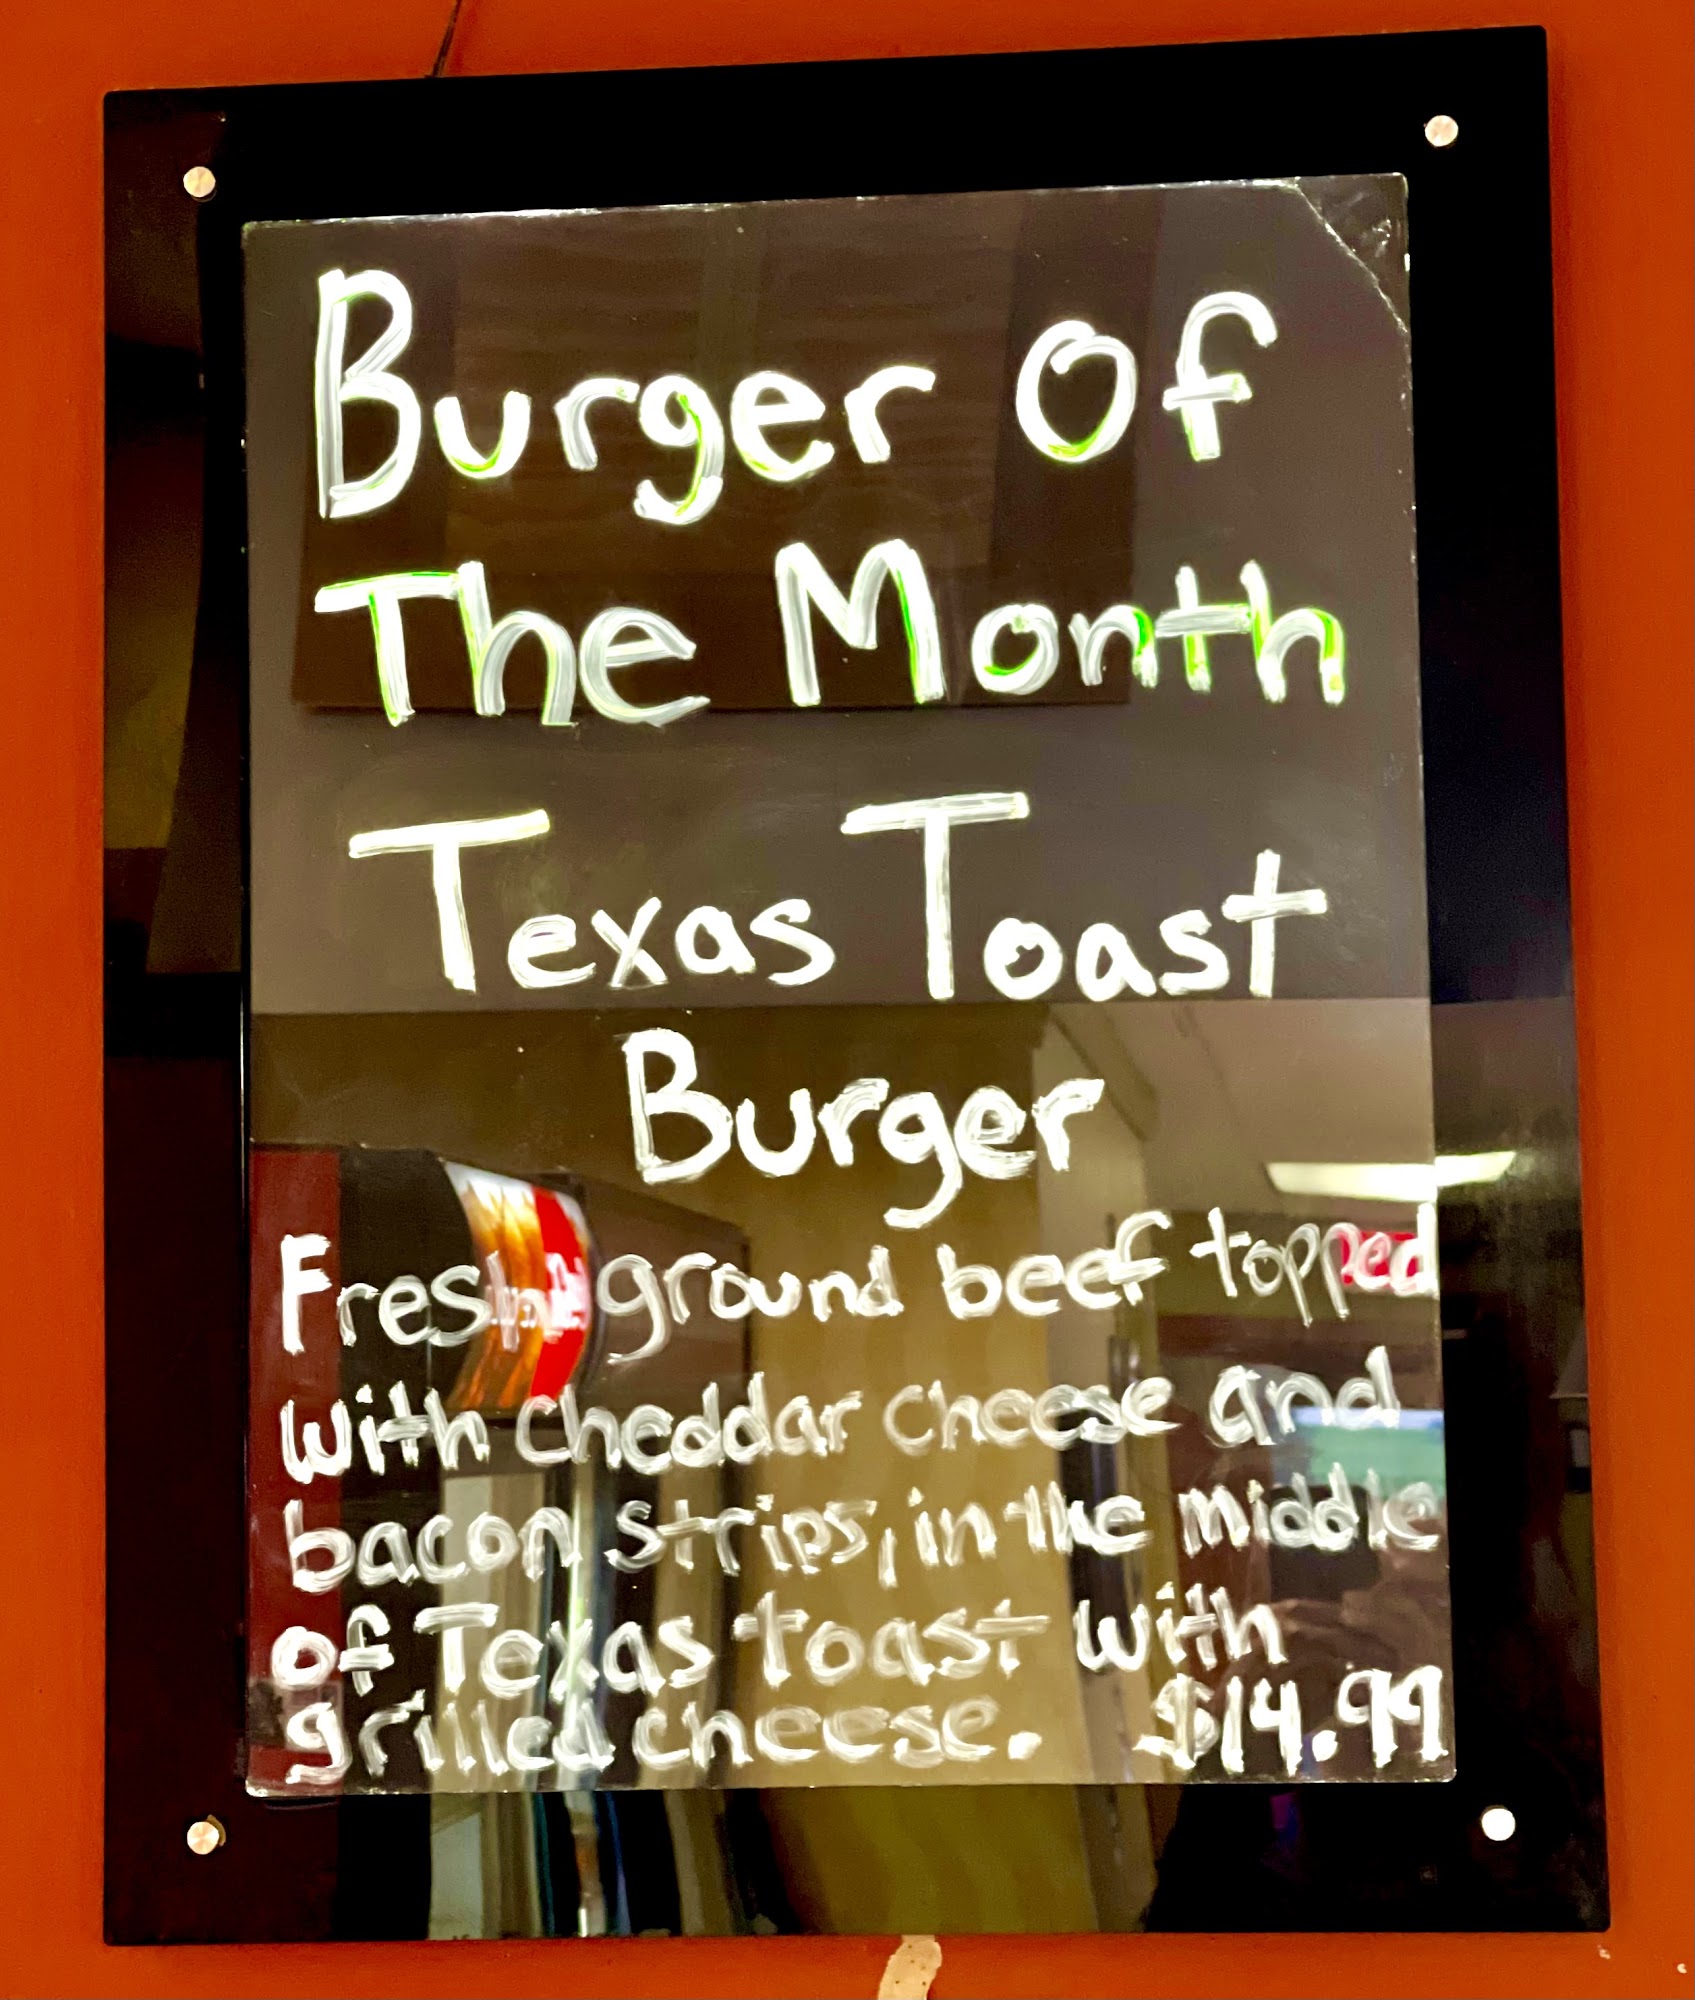 Burger Of
The Month
Texas Toast
Burger
Fresh ground beef topped
with cheddar cheese and
bacon strips, in the middle
of Texas toast with
grilled cheese. $14.99